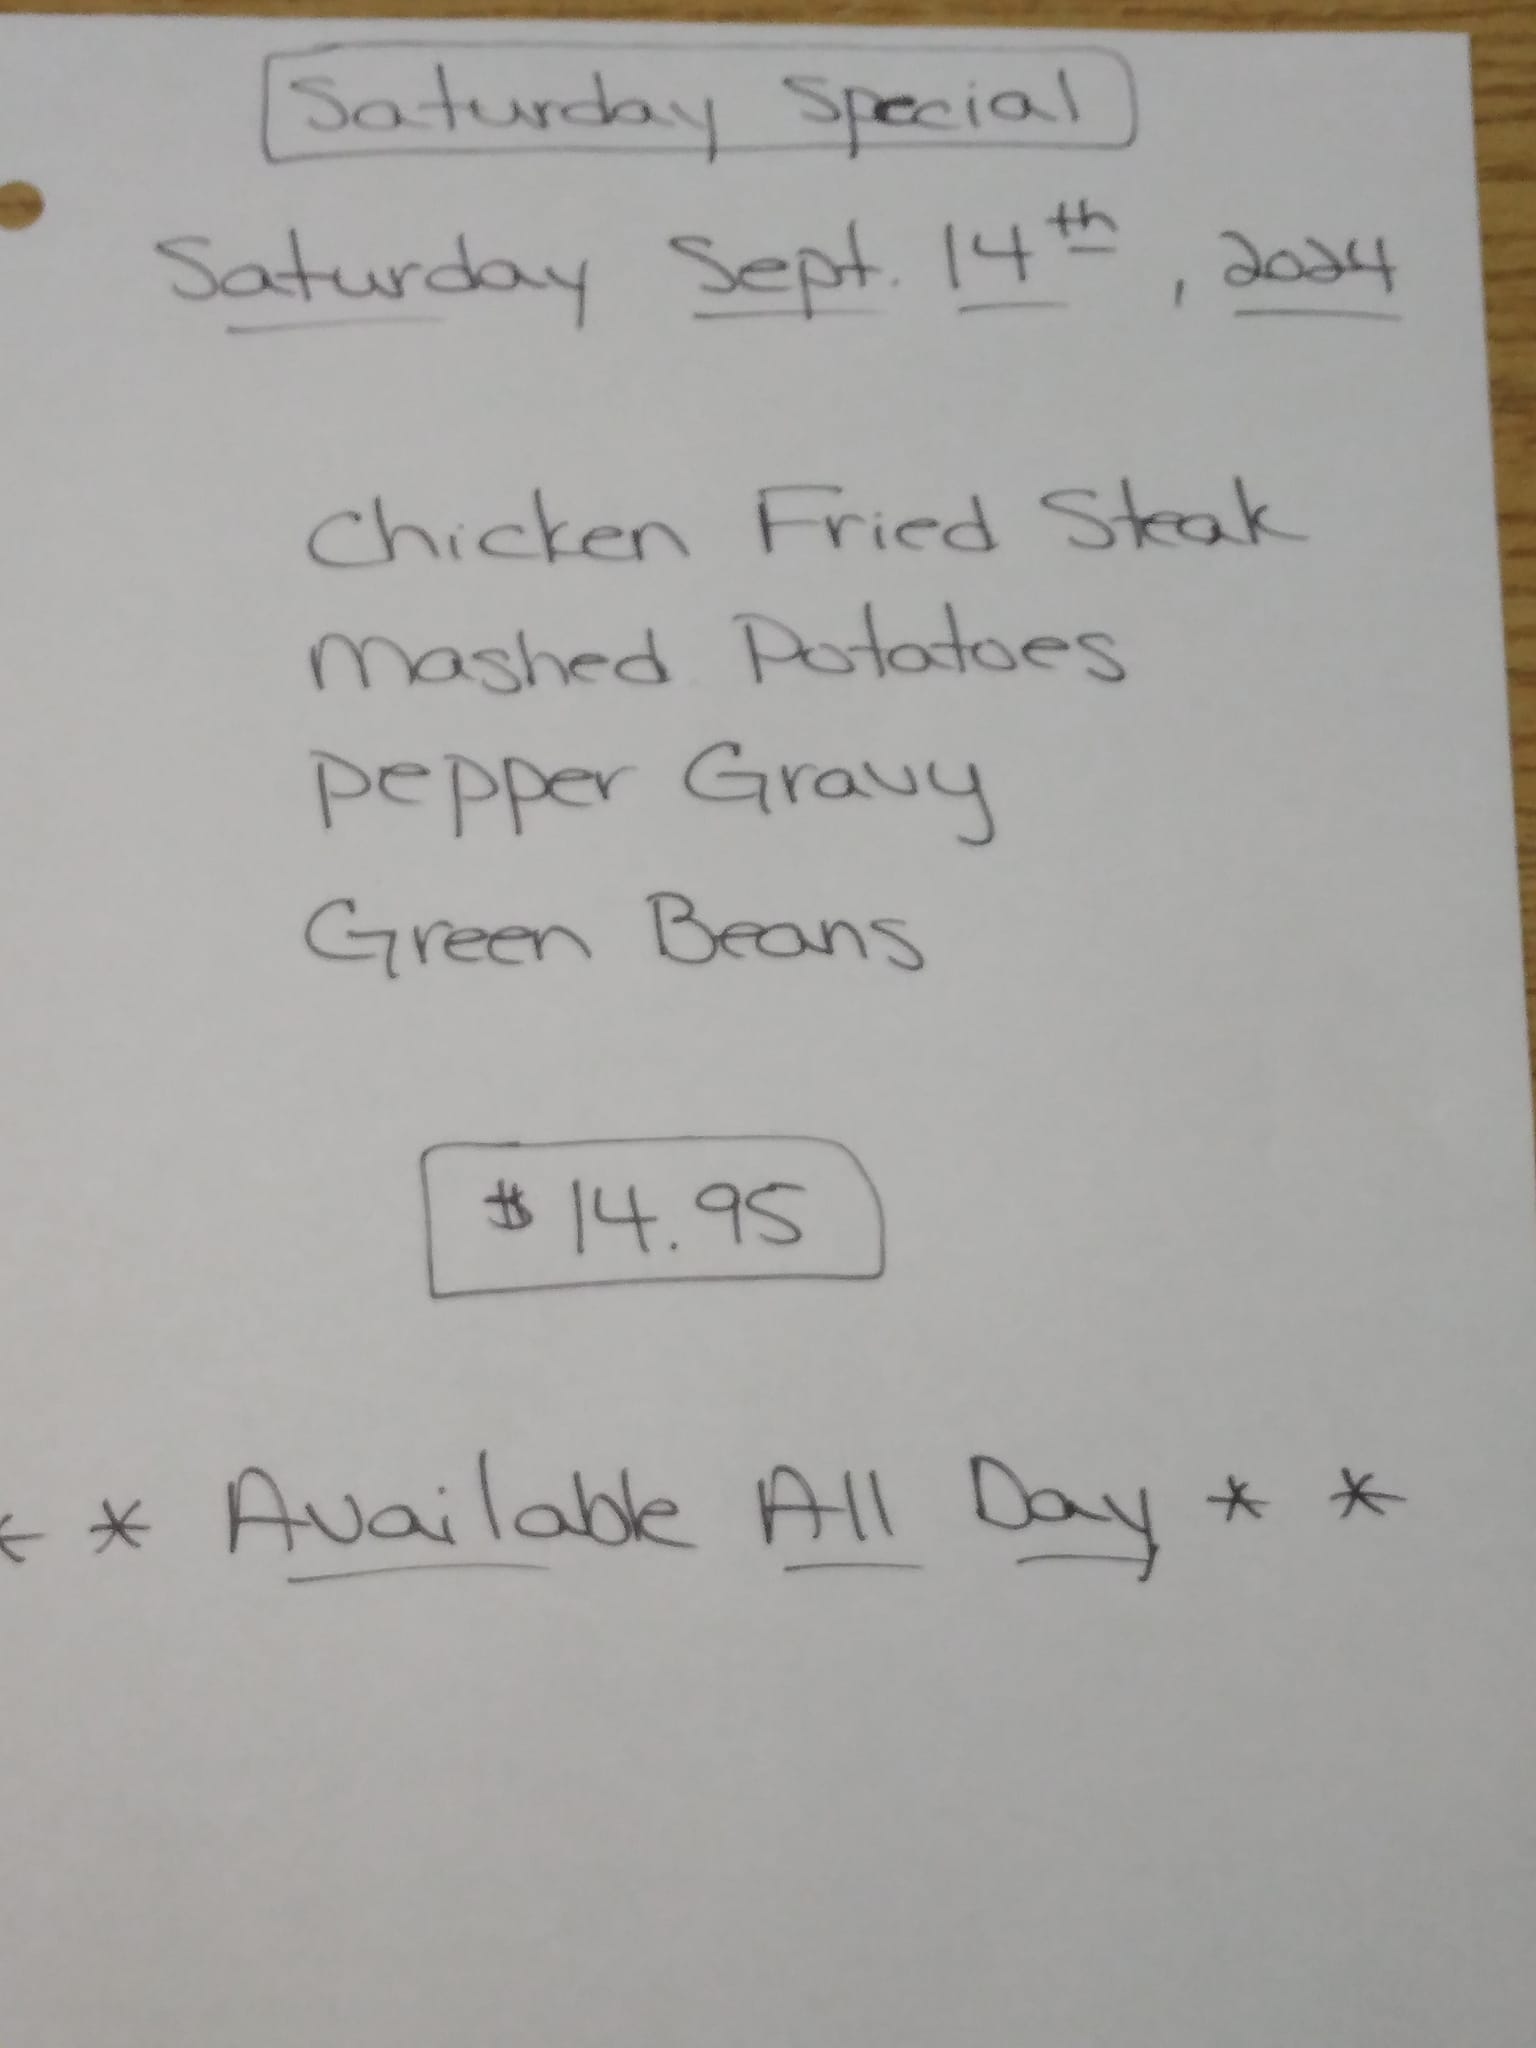 Saturday Special
Saturday Sept. 14th, 2024
Chicken Fried Steak
Mashed Potatoes
Pepper Gravy
Green Beans
$14.95
* * Available All Day * *